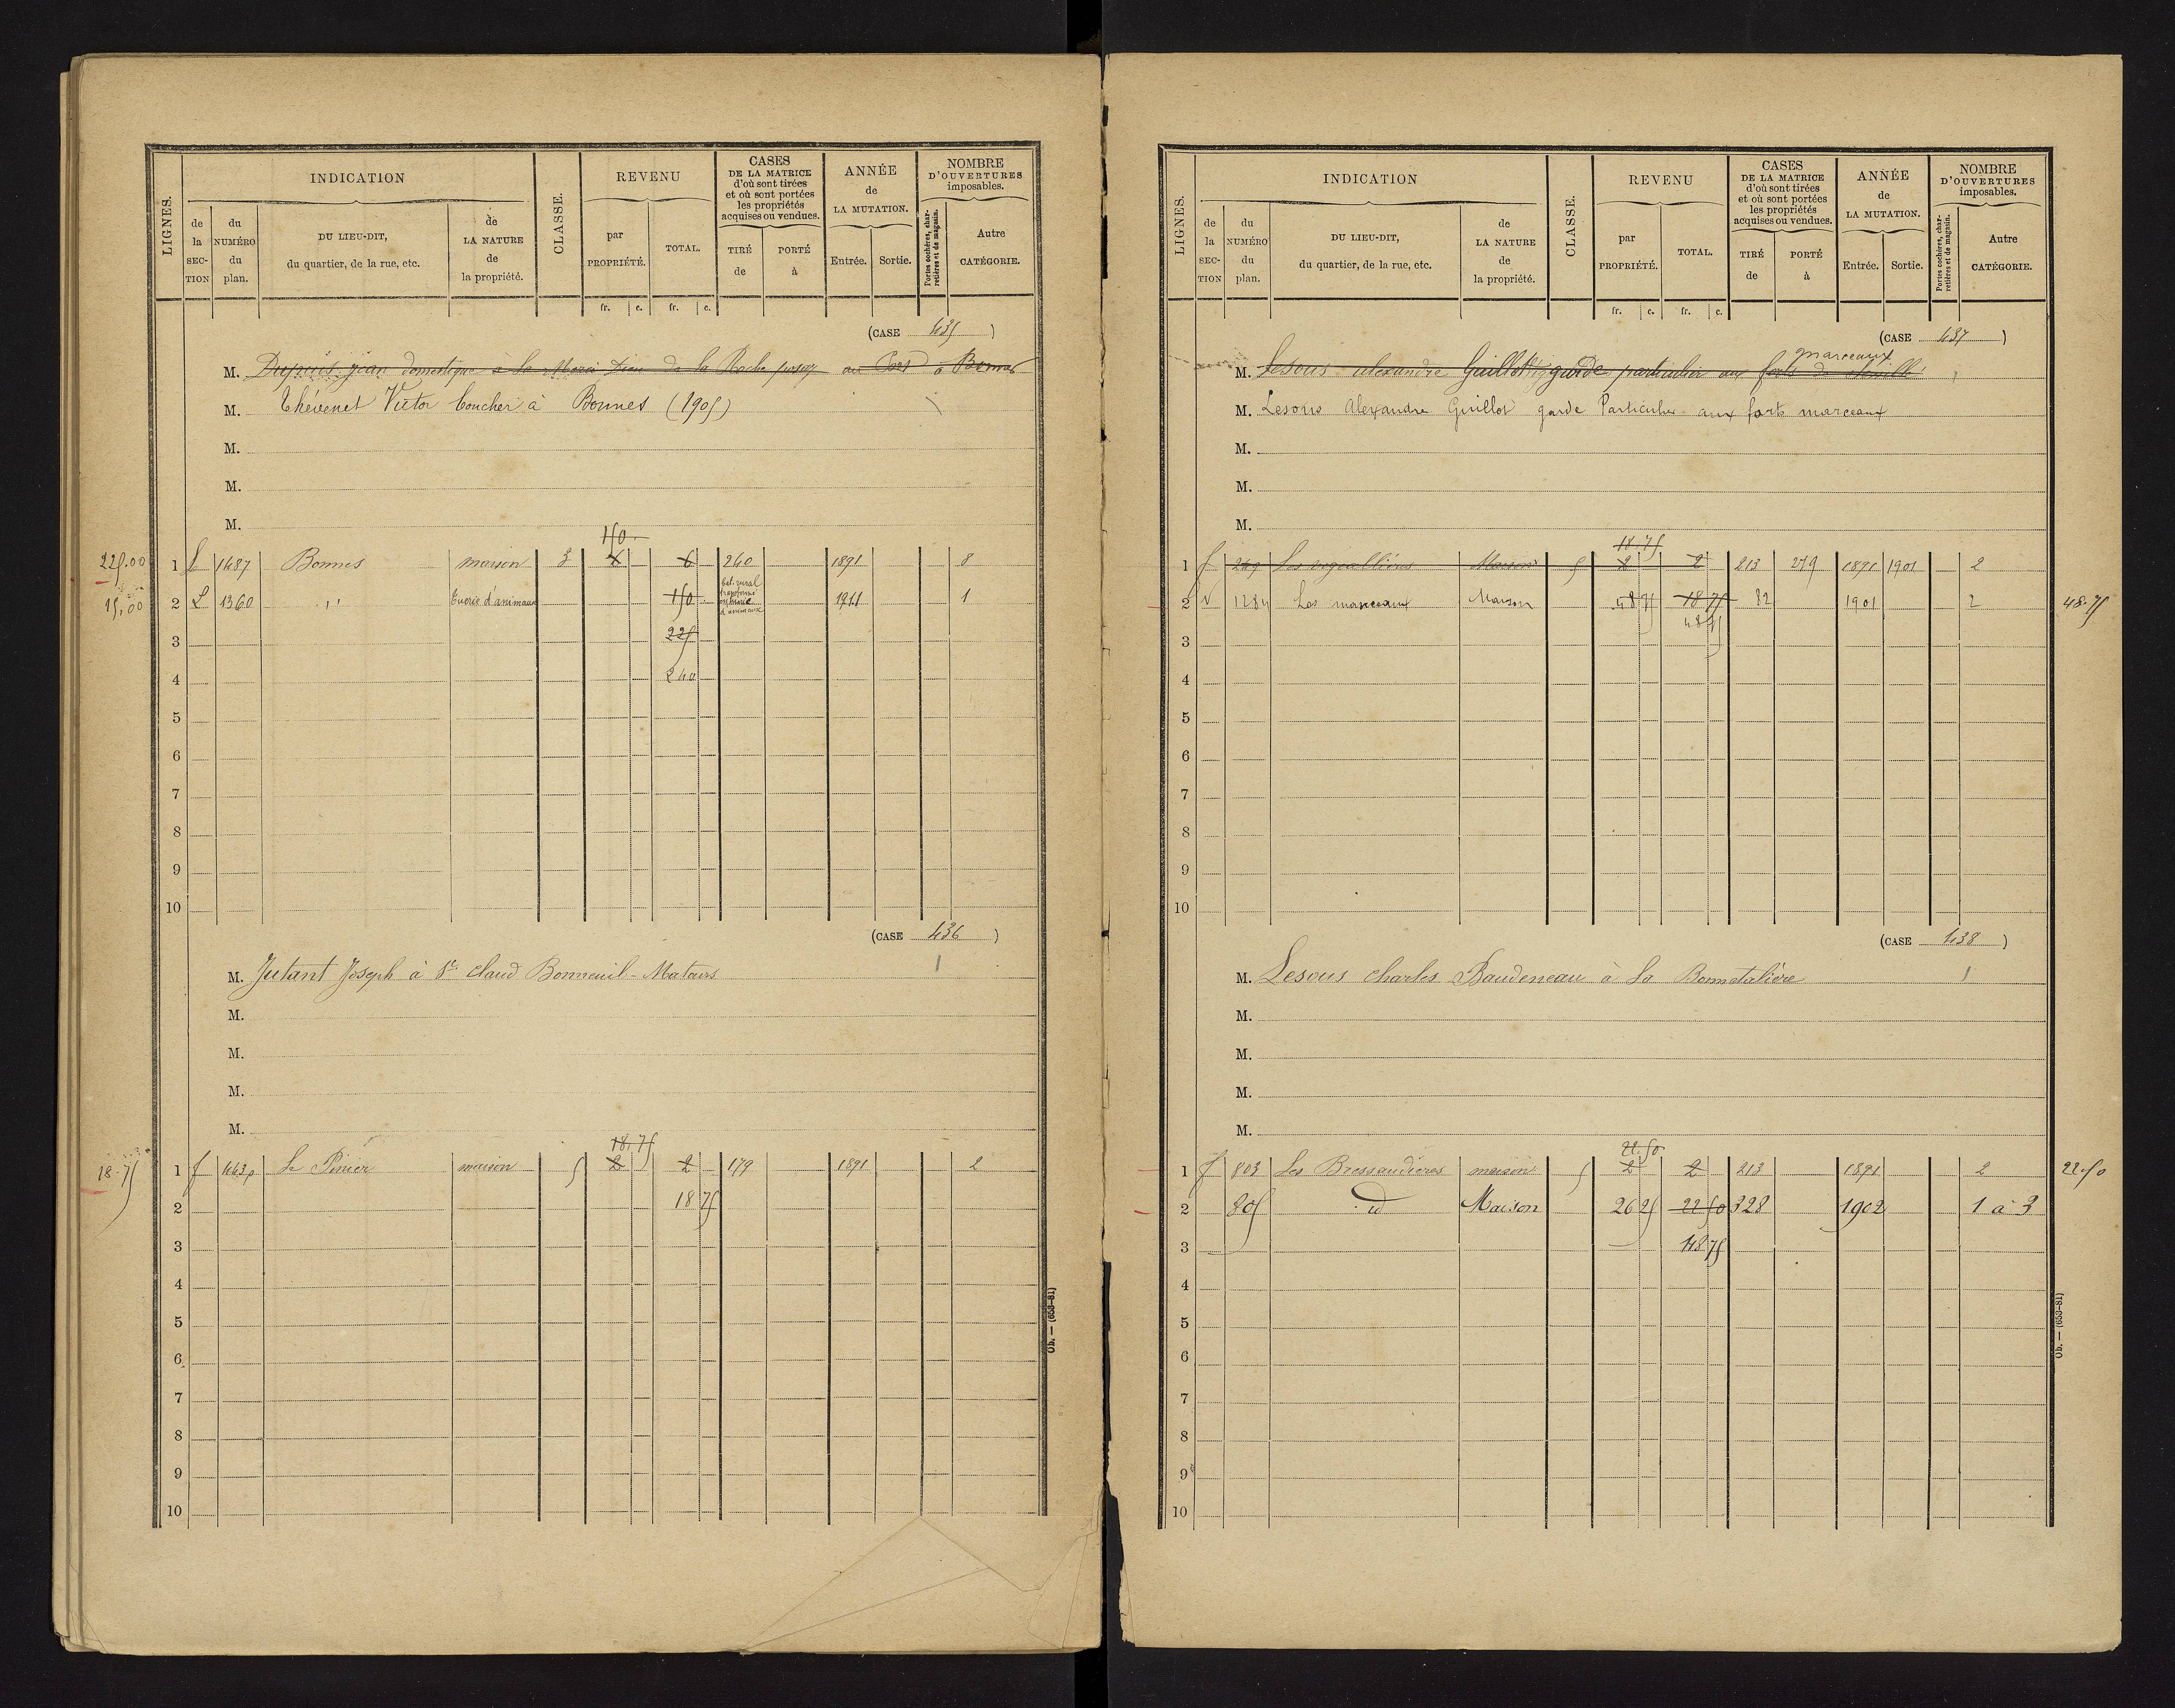 LIGNES.
INDICATION
de la SEC-TION
du NUMÉRO du plan.
DU LIEU-DIT, du quartier, de la rue, etc.
de LA NATURE de la propriété.
CLASSE.
REVENU
par PROPRIÉTÉ.
TOTAL.
CASES DE LA MATRICE d'où sont tirées et où sont portées les propriétés acquises ou vendues.
TIRÉ de
PORTÉ à
ANNÉE de LA MUTATION.
Entrée. Sortie.
NOMBRE D'OUVERTURES imposables.
Portes cochères, charretières et de magasin.
Autre CATÉGORIE.
fr. c. fr. c.
(CASE 435 )
M. Dupuis jean domestique à la Merci Dieu de la Roche posay au Bors à Bonnes
M. Thévenet Victor boucher à Bonnes (1905)
M.
M.
M.
150
225.00 1 L 1487 Bonnes maison 3 6 260 1891 8
15,00 2 L 1360 " Tuerie d'animaux 150 bat. rural transformé en tuerie d'animaux 1911 1
3 225
4 240
5
6
7
8
9
10
(CASE 436 )
M. Jutant Joseph à St Claud Bonneuil-Matours 1
M.
M.
M.
M.
18.75
18.75 1 f 1463p Le Pinier maison 5 2 2 179 1891 2
2 18 75
3
4
5
6
7
8
9
10
Ob. — (653-81)
LIGNES.
INDICATION
de la SEC-TION
du NUMÉRO du plan.
DU LIEU-DIT, du quartier, de la rue, etc.
de LA NATURE de la propriété.
CLASSE.
REVENU
par PROPRIÉTÉ.
TOTAL.
CASES DE LA MATRICE d'où sont tirées et où sont portées les propriétés acquises ou vendues.
TIRÉ de
PORTÉ à
ANNÉE de LA MUTATION.
Entrée. Sortie.
NOMBRE D'OUVERTURES imposables.
Portes cochères, charretières et de magasin.
Autre CATÉGORIE.
fr. c. fr. c.
(CASE 437 )
marceaux
M. Lesous alexandre Guillot garde particulier aux forts de
M. Lesous Alexandre Guillot garde Particulier aux forts marceaux
M.
M.
M.
18.75
1 f 249 Les Maison 5 2 2 213 279 1891 1901 2
2 V 1284 Les marceaux Maison 48 75 18 75 82 1901 2 48.75
3 48 75
4
5
6
7
8
9
10
(CASE 438 )
M. Lesous Charles Baudeneau à la Bonnetalière 1
M.
M.
M.
M.
22.50
1 f 803 Les Bressaudières maison 5 2 2 213 1891 2 22.50
2 805 id Maison 26 25 22 50 328 1902 1 à 3
3 48 75
4
5
6
7
8
9
10
Ob. — (653-81)